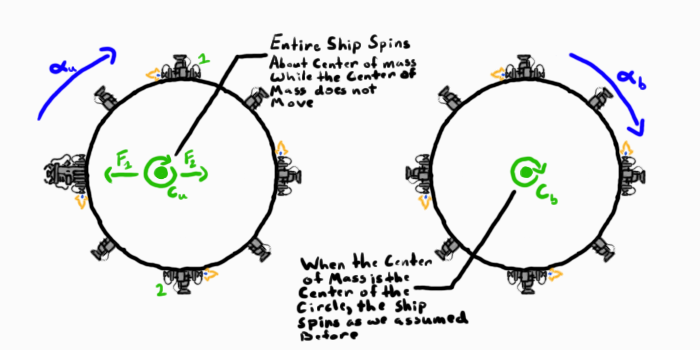 αu
1
Entire Ship Spins
About Center of mass
While the Center of
Mass does not
Move
F1
F2
Cu
2
αb
Cb
When the Center
of Mass is the
Center of the
Circle, the Ship
spins as we assumed
Before